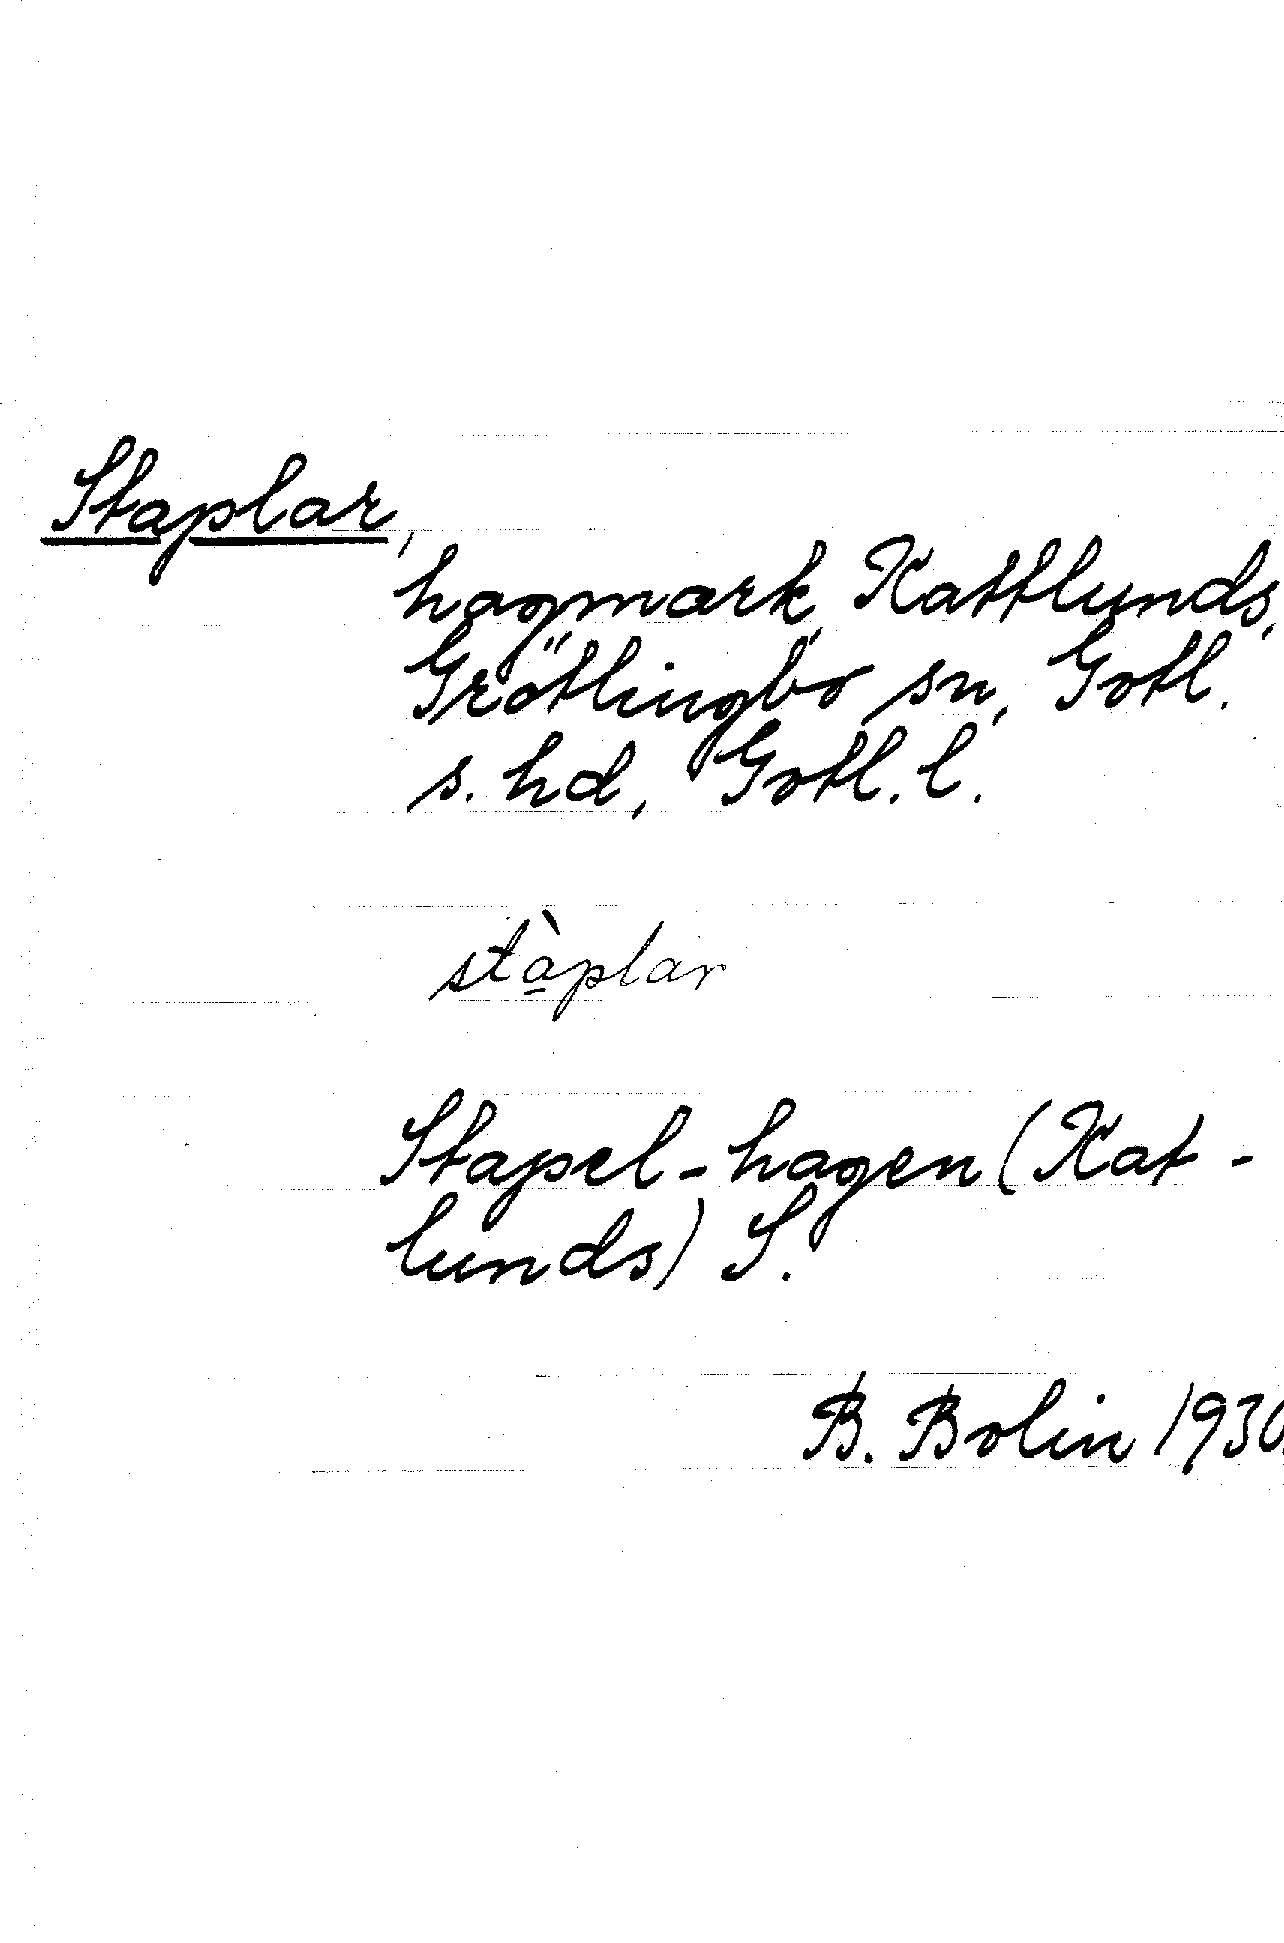 Staplar,
hagmark, Kattlunds,
Grötlingbo sn, Gotl.
s. hd, Gotl. l.
stà̱plar
Stapel-hagen (Kat-
lunds) S.
B. Bolin 1930.